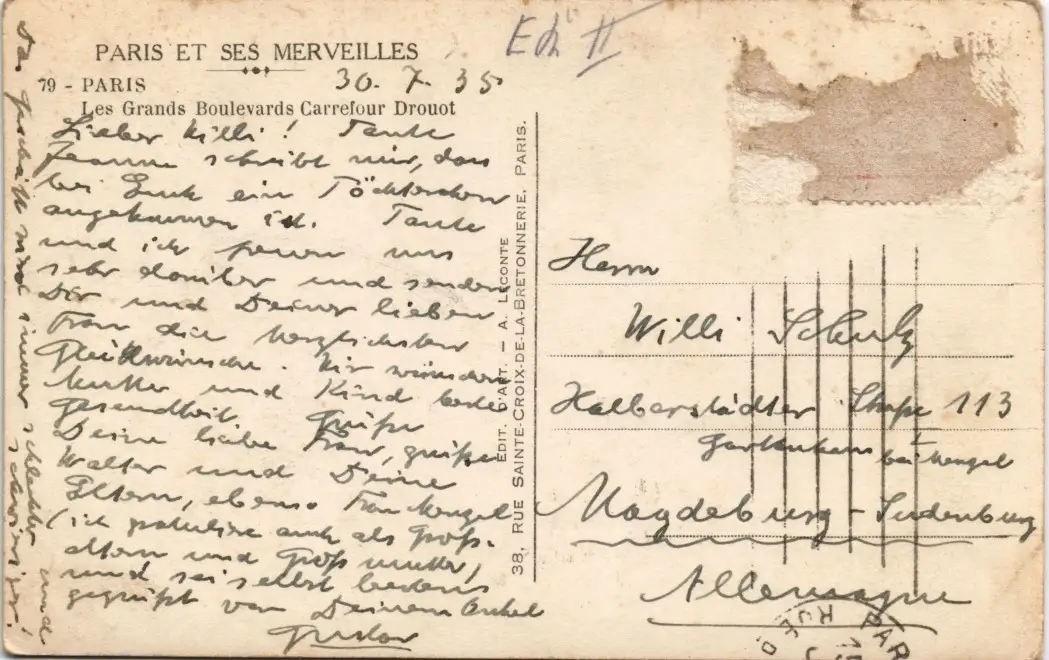 Ech II
PARIS ET SES MERVEILLES
79 - PARIS
30. 7. 35
Les Grands Boulevards Carrefour Drouot
Lieber Willi! Tante
Jeanne schreibt mir, dass
bei Euch ein Töchterchen
angekommen ist. Tante
und ich freuen uns
sehr darüber und senden
Dir und Deiner lieben
Frau die herzlichsten
Glückwünsche. Wir wünschen
Mutter und Kind beste
Gesundheit. Grüße
Deine liebe Frau, grüße
Walter und Deine
Eltern, ebenso Frau Mengel
(ich gratuliere auch als Groß-
eltern und Großmutter,)
und sei selbst bestens
gegrüßt von Deinem Onkel
Gustav
Das Geschäft wird immer schlechter und
schwieriger!
EDIT. D'ART. — A. LECONTE
38, RUE SAINTE-CROIX-DE-LA-BRETONNERIE, PARIS.
Herrn
Willi Schulz
Halberstädter Straße 113
Gartenhaus I bei Mengel
Magdeburg - Sudenburg
Allemagne
PAR
RUE D
15